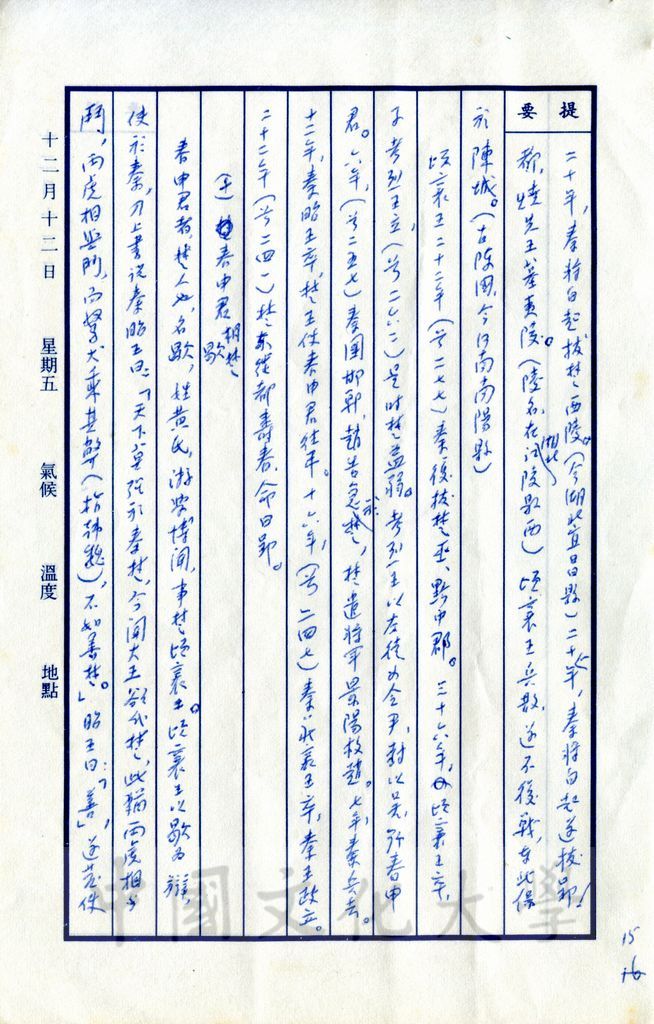 提要
二十年，秦將白起拔楚西陵。(今湖北宜昌縣)二十一年，秦將白起遂拔郢!
郢，燒先王墓夷陵。(陵名，在湖北 陵縣西)頃襄王兵散，遂不復戰，東北保
於陳城。(古陳國，今河南南陽縣)
頃襄王二十二年(前二七七)秦復拔楚巫、黔中郡。三十六年，頃襄王卒，
子考烈王立，(前二六二)是時楚益弱。考烈王以左徒為令尹，封以吳，號春申
君。六年，(前二五七)秦圍邯鄲，趙告急於楚，楚遣將軍景陽救趙。七年，秦兵去。
十二年，秦昭王卒，楚王使春申君往弔。十六年，(前二四七)秦莊襄王卒，秦王政立。
二十二年(前二四一)楚東徙都壽春，命曰郢。
(十)春申君 相楚 歇
春申君者，楚人也，名歇，姓黃氏，游學博聞，事楚頃襄王。頃襄王以歇為辯，
使於秦，乃上書說秦昭王曰：「天下莫強於秦楚，今聞大王欲伐楚，此猶兩虎相與
鬥，兩虎相與鬥，而駑犬乘其弊(指韓魏)，不如善楚。」昭王曰：「善」，遂發使
十二月十二日 星期五 氣候 溫度 地點
中國文化大學
15
16